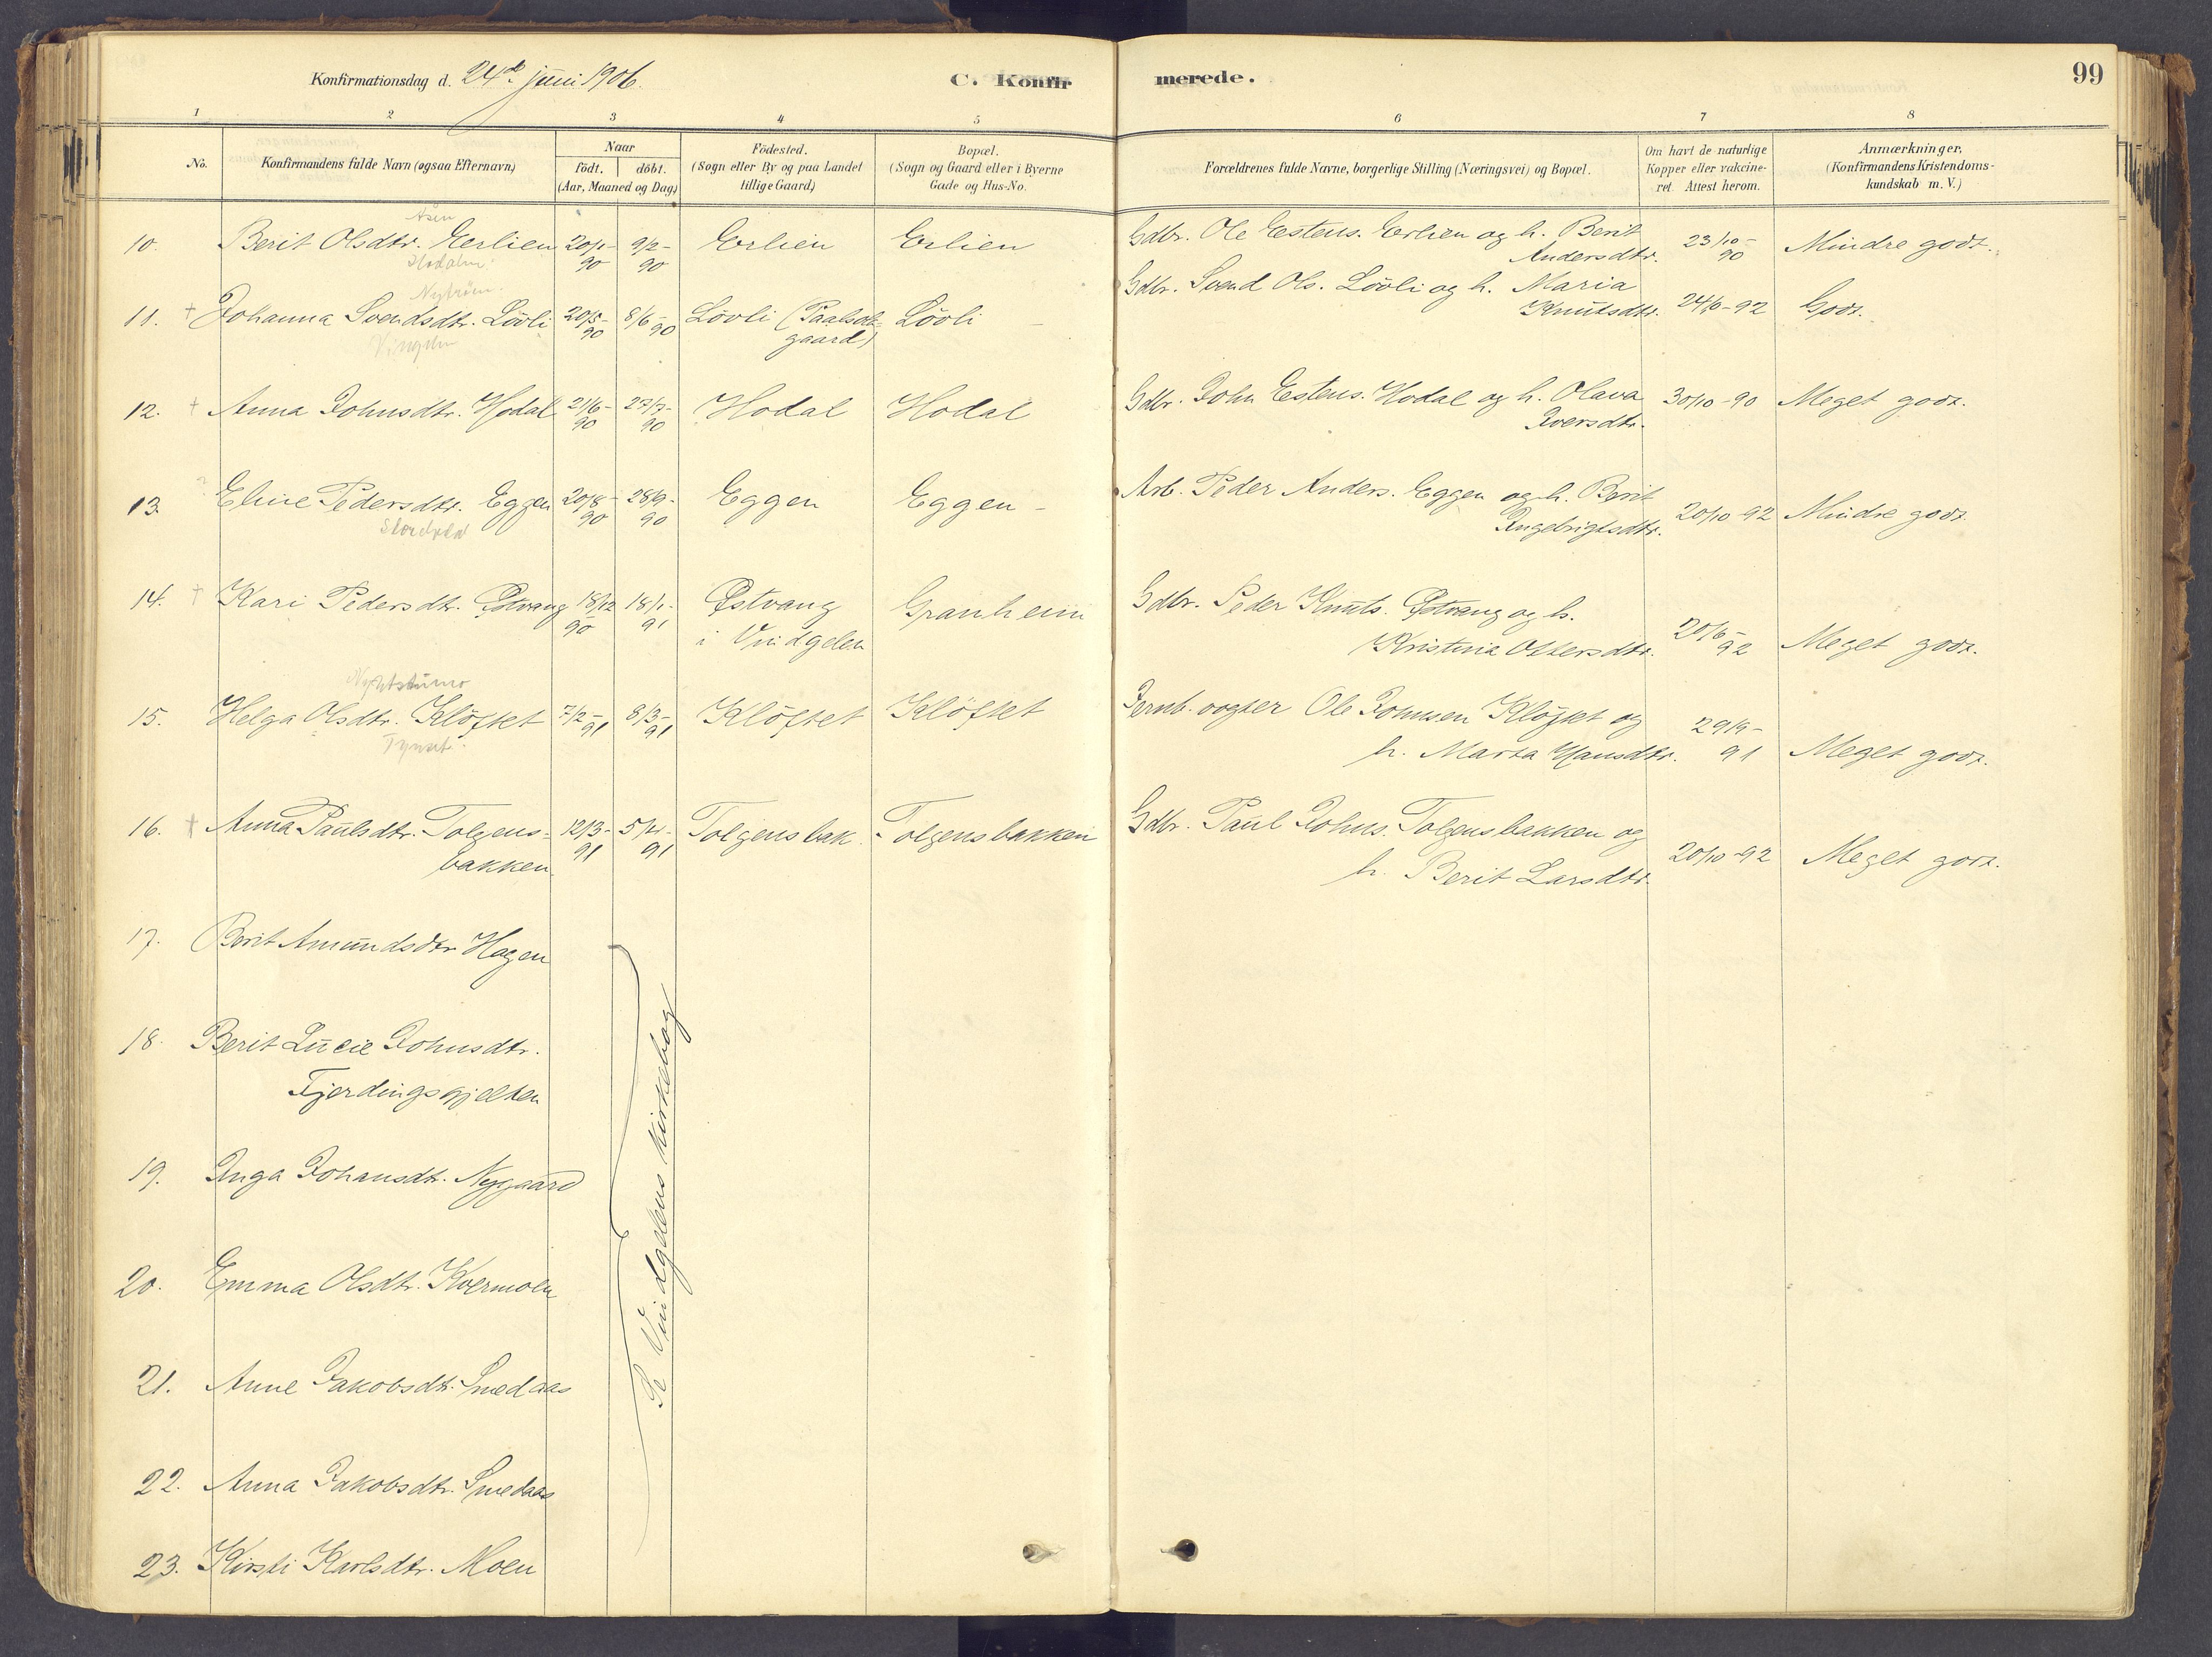 Konfirmationsdag d. 24de juni 1906.
C. Konfirmerede.
99
1 2 3 4 5 6 7 8
No.
Konfirmandens fulde Navn (ogsaa Efternavn)
Naar
födt. döbt.
(Aar, Maaned og Dag)
Födested.
(Sogn eller By og paa Landet
tillige Gaard)
Bopæl.
(Sogn og Gaard eller i Byerne
Gade og Hus-No.
Forældrenes fulde Navne, borgerlige Stilling (Næringsvei) og Bopæl.
Om havt de naturlige
Kopper eller vakcine-
ret. Attest herom.
Anmærkninger,
(Konfirmandens Kristendoms-
kundskab m. V.)
Åsen
10. Berit Olsdtr. Erlien 20/1- 90 9/2- 90 Erlien Erlien Gdbr. Ole Estens. Erlien og h. Berit
Andersdtr. 23/10- 90 Mindre godt.
Hodalen
Nyströen
11. † Johanna Svendsdtr. Lövli 20/5- 90 8/6- 90 Lövli (Paalsok-
gaard) Lövli - Gdbr. Svend Ols. Lövli og h. Maria
Knutsdtr. 24/6-92 Godt.
Vingelen
12. † Anna Johnsdtr. Hodal 21/6- 90 27/7- 90 Hodal Hodal Gdbr. John Estens. Hodal og h. Olava
Iversdtr. 30/10-90 Meget godt.
13. Eline Pedersdtr. Eggen 20/8- 90 28/9- 90 Eggen Eggen - Arb. Peder Anders. Eggen og h. Berit
Ingebrigtsdtr. 20/10-92 Mindre godt.
14. † Kari Pedersdtr. Østvang 18/12 90 18/1- 91 Østvang
i Vindgelen Granheim Gdbr. Peder Knuts. Østvang og h.
Kristine Ottersdtr. 20/6- 92 Meget godt.
15. Helga Olsdtr. Klöftet 7/2- 91 8/3- 91 Klöftet Klöftet Jernb.vogter Ole Johnsen Klöftet og
h. Marta Hansdtr. 29/9- 91 Meget godt.
Tynset.
16. † Anna Paulsdtr. Tolgens-
bakken 12/3- 91 5/4- 91 Tolgensbak. Tolgensbakken Gdbr. Paul Johns. Tolgensbakken og
h. Berit Larsdtr. 20/10-92 Meget godt.
17. Berit Amundsdtr Hagen
18. Berit Lucie Johnsdtr.
Fjerdingsgjelten
19. Inga Johansdtr. Nygaard
20. Emma Olsdtr. Kvermoen
21. Anne Jakobsdtr. Smedaas
22. Anna Jakobsdtr. Smedaas
23. Kirsti Karlsdtr. Moen
Se Vindgelens kirkebog